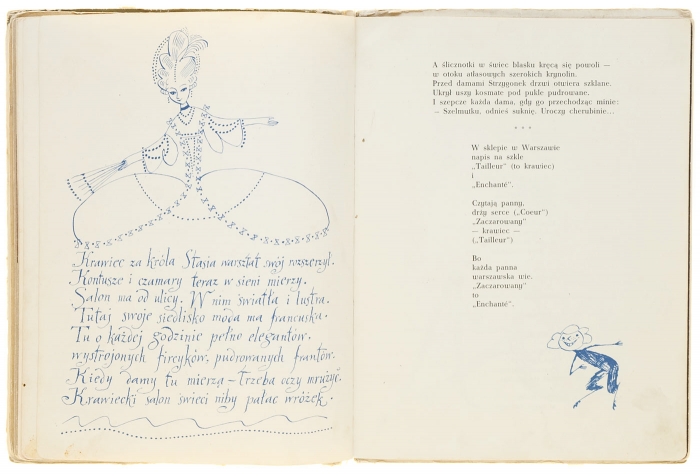 Krawiec za króla Stasia warsztat swój rozszerzył.
Kontusze i czamary teraz w sieni mierzy.
Salon ma od ulicy. W nim światła i lustra.
Tutaj swoje siedlisko moda ma francuska.
Tu o każdej godzinie pełno elegantów,
wystrojonych fircyków, pudrowanych frantów.
Kiedy damy tu mierzą – trzeba oczy mrużyć.
Krawiecki salon świeci niby pałac wróżek.
A ślicznotki w świec blasku kręcą się powoli —
w otoku atłasowych szerokich krynolin.
Przed damami Strzygonek drzwi otwiera szklane.
Ukrył uszy kosmate pod pukle pudrowane.
I szepcze każda dama, gdy go przechodząc minie:
— Szelmutku, odnieś suknię. Uroczy cherubinie...
* * *
W sklepie w Warszawie
napis na szkle
„Tailleur" (to krawiec)
i
„Enchanté".
Czytają panny,
drży serce („Coeur")
„Zaczarowany"
— krawiec —
(„Tailleur")
Bo
każda panna
warszawska wie.
„Zaczarowany"
to
„Enchanté".